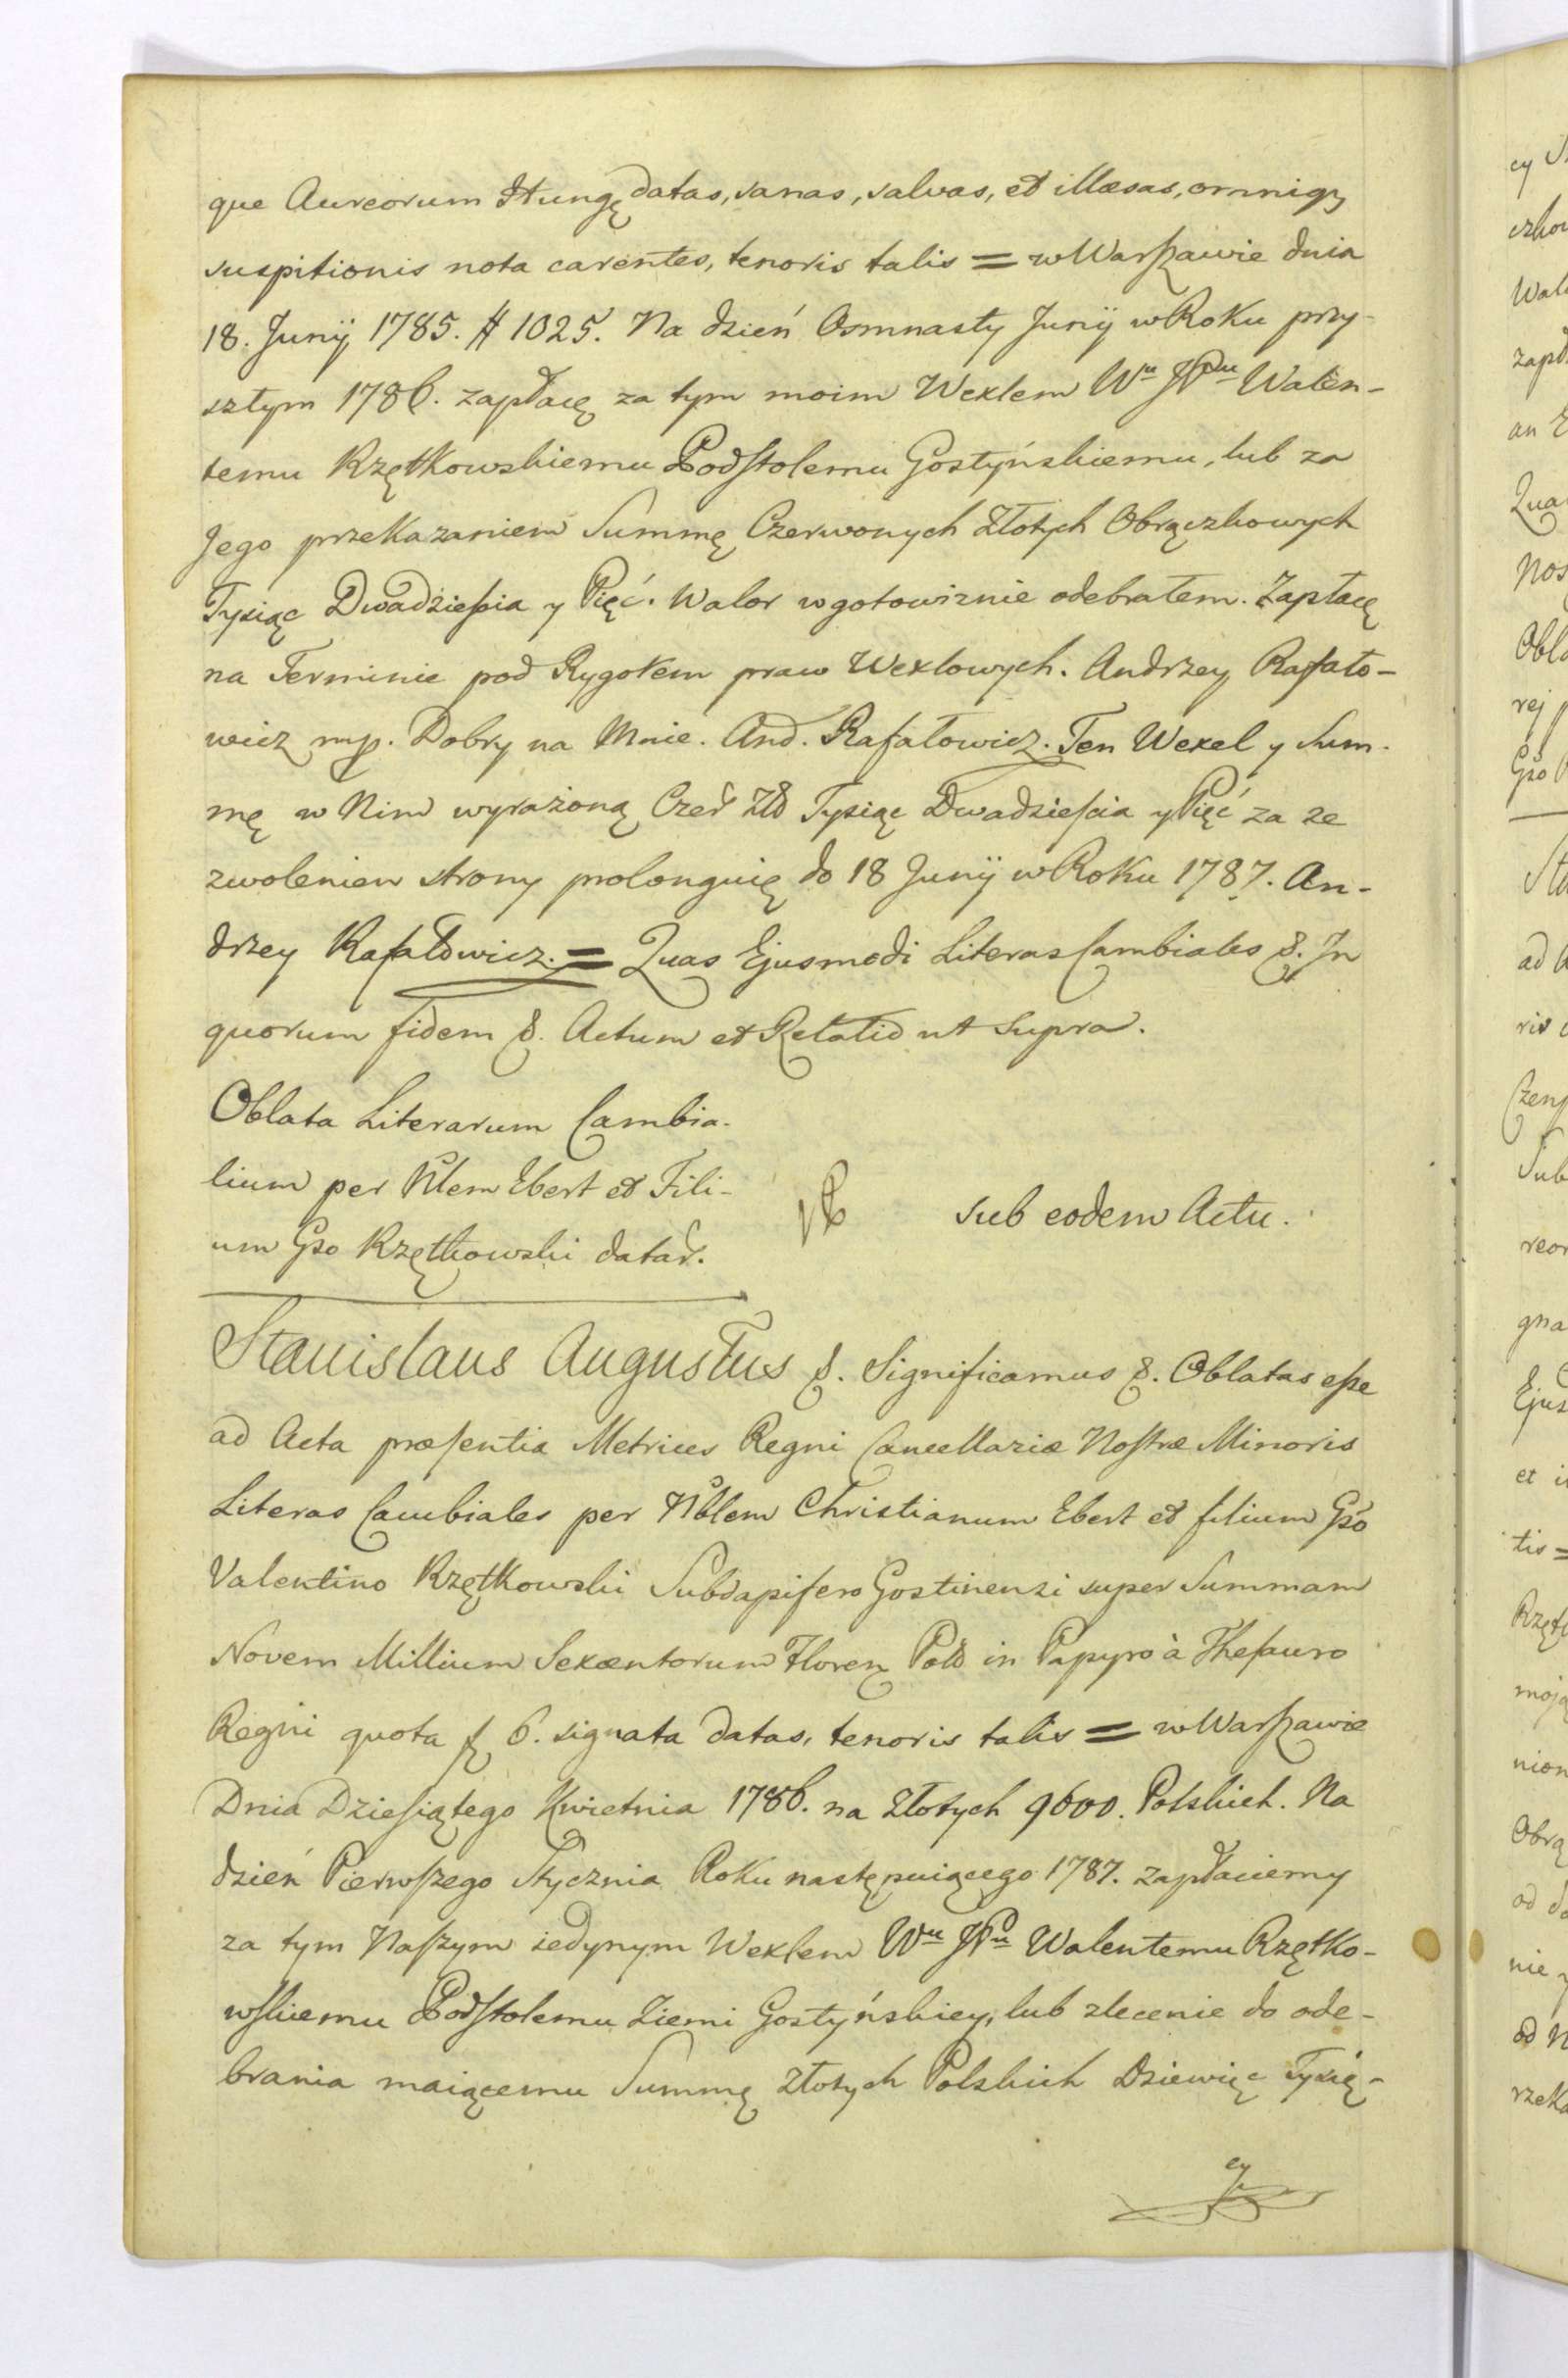 que Aureorum Hung datas, sanas, salvas, et illæsas, omniq;
suspitionis nota carentes, tenoris talis = w Warszawie dnia
18. Junÿ 1785. # 1025. Na dzień Osmnasty Junÿ w Roku przy-
sztym 1786. zapłacę za tym moim Wexlem Wu JPnu Walen-
temu Rzętkowskiemu Podstolemu Gostyńskiemu, lub za
Jego przekazaniem Summę Czerwonych Złotych Obrączkowych
Tysiąc Dwadzieścia y Pięć. Walor w gotowiznie odebrałem. Zapłacę
na Terminie pod Rygorem praw Wexlowych. Andrzey Rafało-
wicz mp. Dobry na Mnie. And. Rafałowicz. Ten Wexel y Sum-
mę w Nim wyrażoną Czer Złł Tysiąc Dwadzieścia y Pięć za ze
zwoleniem strony prolonguię do 18 Junÿ w Roku 1787. An-
drzey Rafałowicz. = Quas Ejusmodi Literas Cambiales &. In
quorum fidem &. Actum et Relatio ut Supra.
Oblata Literarum Cambia-
lium per Nblem Ebert et Fili-
um Gso Rzętkowski datar.
sub eodem Actu.
Stanislaus Augustus &. Significamus &. Oblatas esse
ad Acta præsentia Metrices Regni Cancellariæ Nostræ Minoris
Literas Cambiales per Nblem Christianum Ebert et filium Gso
Valentino Rzętkowski Subdapifero Gostinensi super Summam
Novem Millium Sexcentorum Floren Pol in Papyro à Thesauro
Regni quota f 6. signata datas, tenoris talis = w Warszawie
Dnia Dziesiątego Kwietnia 1786. na Złotych 9600. Polskich. Na
dzień Pierwszego Stycznia Roku następuiącego 1787. zapłaciemy
za tym Naszym iedynym Wexlem Wu JPnu Walentemu Rzętko-
wskiemu Podstolemu Ziemi Gostyńskiey, lub zlecenie do ode-
brania maiącemu Summę Złotych Polskich Dziewięć Tysię-
cy